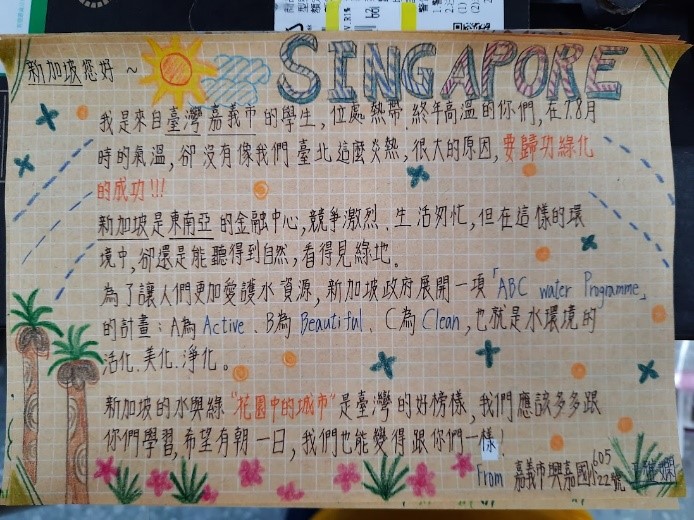 SINGAPORE
新加坡您好～
我是來自臺灣嘉義市的學生，位處熱帶、終年高溫的你們，在7.8月
時的氣溫，卻沒有像我們臺北這麼炎熱，很大的原因，要歸功綠化
的成功!!!
新加坡是東南亞的金融中心，競爭激烈、生活匆忙，但在這樣的環
境中，卻還是能聽得到自然，看得見綠地。
為了讓人們更加愛護水資源，新加坡政府展開一項「ABC water Programme」
的計畫：A為Active、B為Beautiful、C為Clean，也就是水環境的
活化、美化、淨化。
新加坡的水與綠"花園中的城市"是臺灣的好榜樣，我們應該多多跟
你們學習，希望有朝一日，我們也能變得跟你們一樣！
From 嘉義市興嘉國小605
22號